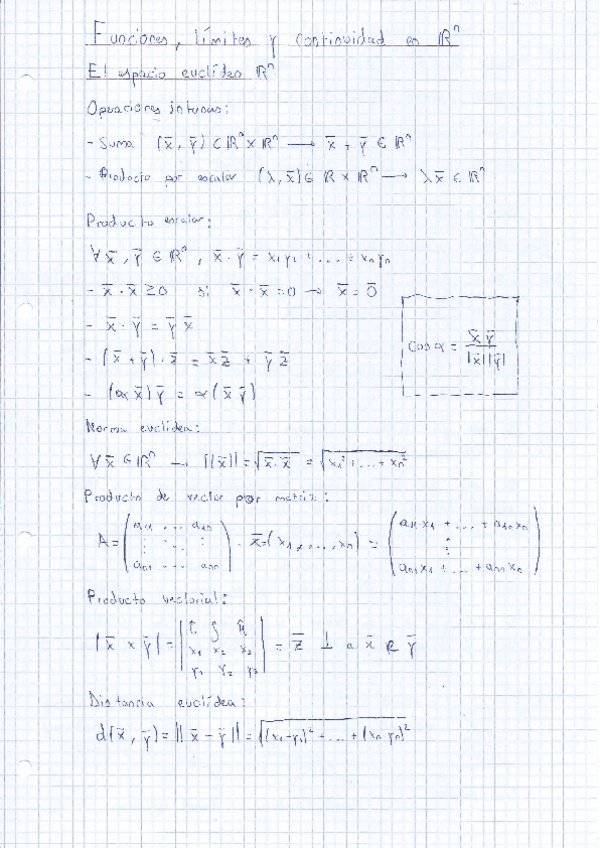 Funciones, límites y continuidad en ℝⁿ
El espacio euclídeo ℝⁿ
Operaciones internas:
- Suma (x̄, ȳ) ∈ ℝⁿ × ℝⁿ → x̄ + ȳ ∈ ℝⁿ
- Producto por escalar (λ, x̄) ∈ ℝ × ℝⁿ → λx̄ ∈ ℝⁿ
Producto escalar:
∀ x̄, ȳ ∈ ℝⁿ, x̄ · ȳ = x₁y₁ + ... + xₙyₙ
- x̄ · x̄ ≥ 0 si x̄ · x̄ = 0 → x̄ = 0̄
- x̄ · ȳ = ȳ x̄
- (x̄ + ȳ) · z̄ = x̄ z̄ + ȳ z̄
cos α = x̄ ȳ / |x̄||ȳ|
- (α x̄) ȳ = α (x̄ ȳ)
Norma euclídea:
∀ x̄ ∈ ℝⁿ → ||x̄|| = √(x̄ · x̄) = √(x₁² + ... + xₙ²)
Producto de vector por matriz:
A = (a₁₁ ... a₁ₙ
⋮ ... ⋮
aₙ₁ ... aₙₙ) · x̄ = (x₁, ..., xₙ) = (a₁₁x₁ + ... + a₁ₙxₙ
⋮
aₙ₁x₁ + ... + aₙₙxₙ)
Producto vectorial:
|x̄ × ȳ| = | i j k
x₁ x₂ x₃
y₁ y₂ y₃ | = z̄ ⊥ a x̄ e ȳ
Distancia euclídea:
d(x̄, ȳ) = ||x̄ - ȳ|| = √((x₁-y₁)² + ... + (xₙ yₙ)²)